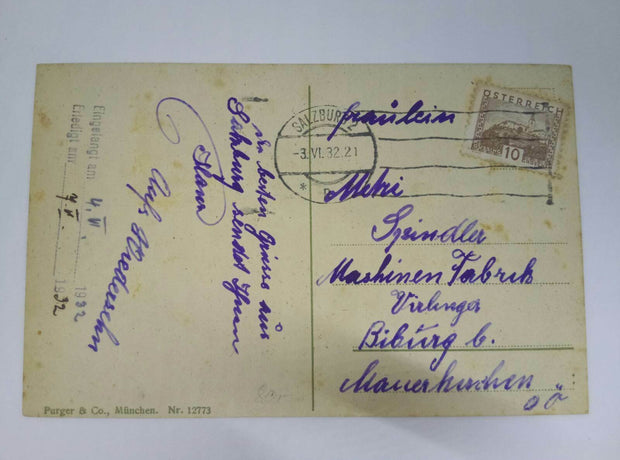 Die besten Grüsse aus
Salzburg sendet Ihnen
Auf Wiedersehn
Eingelangt am 4. VI. 1932
Erledigt am 4. VI. 1932
SALZBURG 2
-3.VI.32.21
ÖSTERREICH
10
Fräulein
Metzi
Spindler
Maschinen Fabrik
Biburg b.
Mauerkirchen
OÖ
Purger & Co., München. Nr. 12773